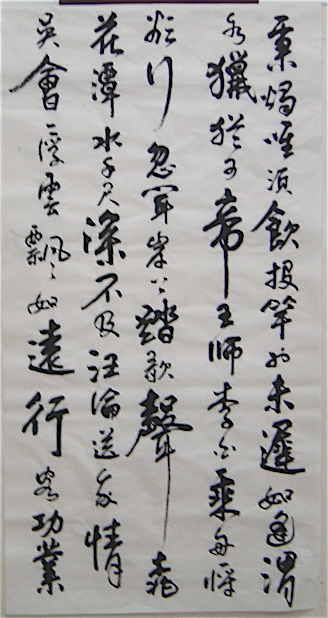 秉燭唯須飲投竿也未遲如逢渭
水獵猶可帝王師李白乘舟將
欲行忽聞岸上踏歌聲桃
花潭水千尺深不及汪倫送我情
吳會一浮雲飄如遠行客功業